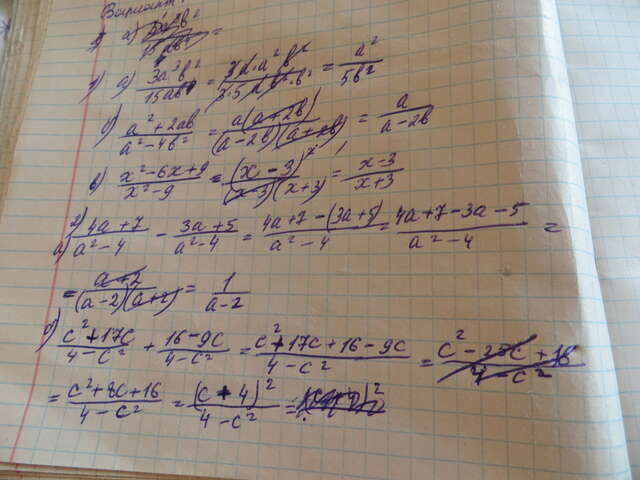 Вариант 1
а) 3a³b² / 15ab⁴ =
1) а) 3a³b² / 15ab⁴ = 3·a·a²·b² / 3·5·a·b²·b² = a² / 5b²
б) a² + 2ab / a² − 4b² = a(a + 2b) / (a − 2b)(a + 2b) = a / a − 2b
в) x² − 6x + 9 / x² − 9 = (x − 3)² / (x − 3)(x + 3) = x − 3 / x + 3
2)
а) 4a + 7 / a² − 4 − 3a + 5 / a² − 4 = 4a + 7 − (3a + 5) / a² − 4 = 4a + 7 − 3a − 5 / a² − 4 =
= a + 2 / (a − 2)(a + 2) = 1 / a − 2
б) c² + 17c / 4 − c² + 16 − 9c / 4 − c² = c² + 17c + 16 − 9c / 4 − c² = c² − 25c + 16 / 4 − c²
= c² + 8c + 16 / 4 − c² = (c + 4)² / 4 − c² =